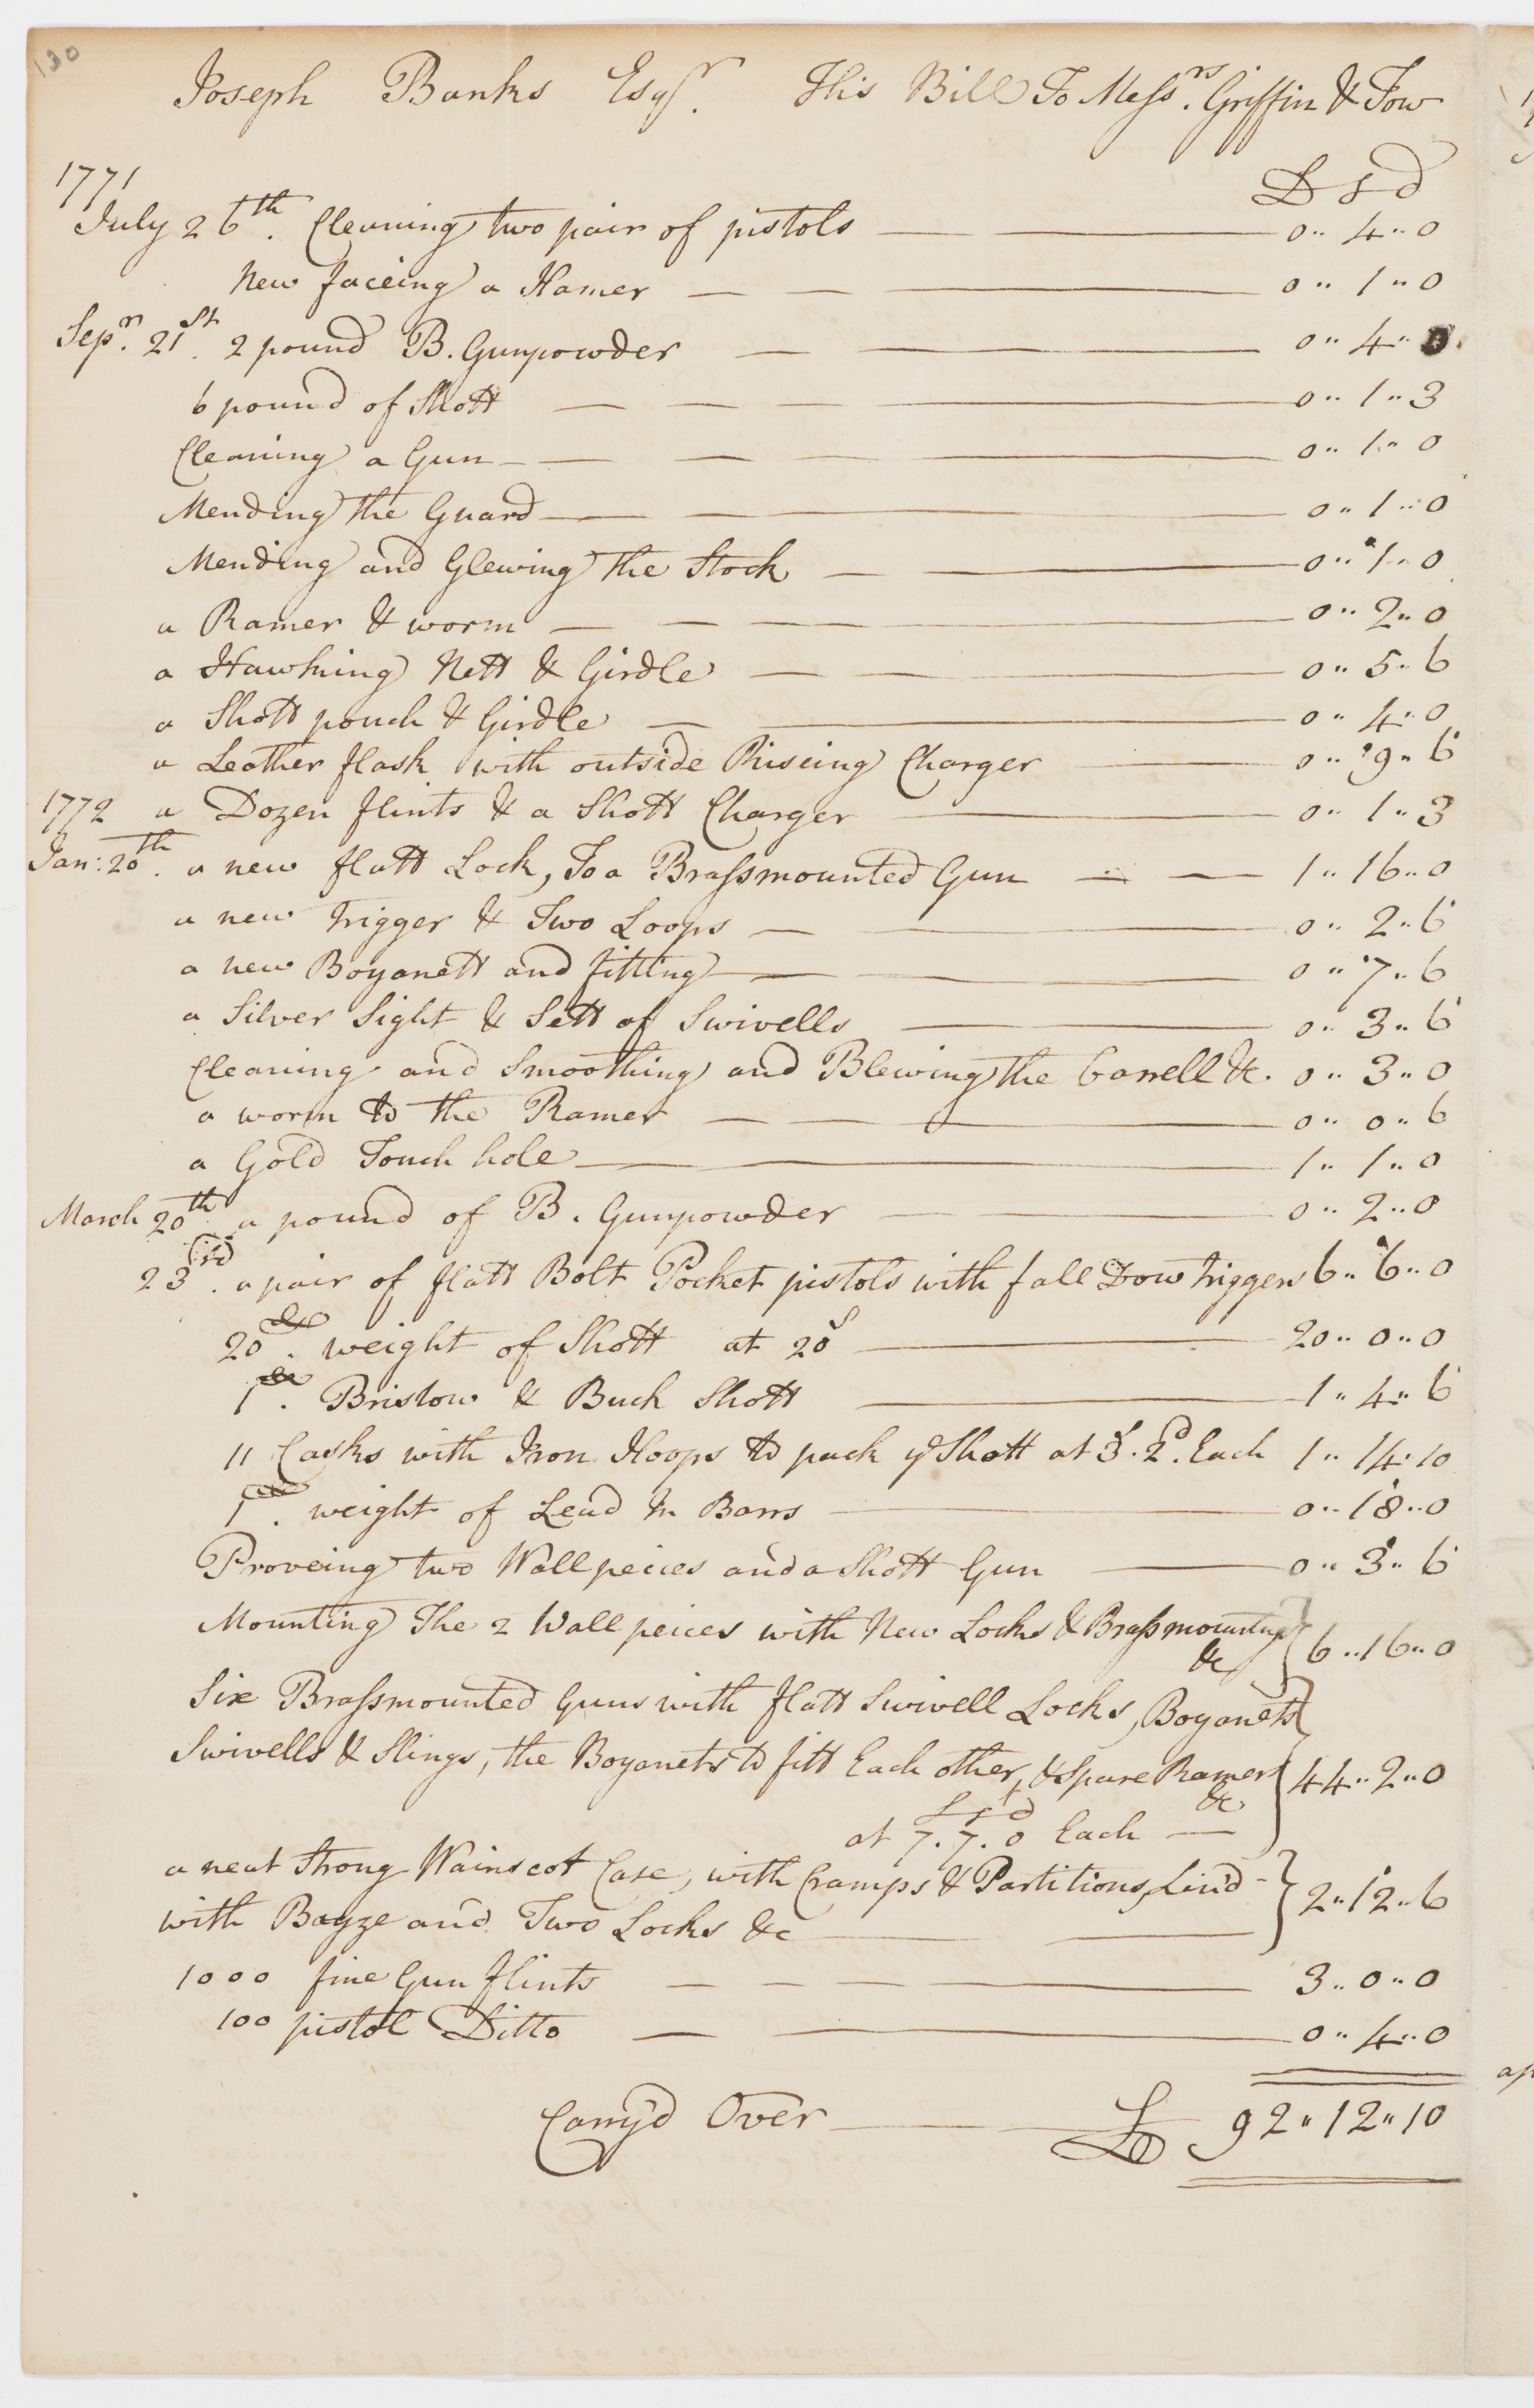 130
Joseph Banks Esqr. This Bill To Messrs. Griffin & Tow
1771
£ s d
July 26th. Cleaning two pair of pistols 0 " 4 " 0
New faceing a Hamer 0 " 1 " 0
Sepr. 21st. 2 pound B. Gunpowder 0 " 4 " 0
6 pound of Shott 0 " 1 " 3
Cleaning a Gun 0 " 1 " 0
Mending the Guard 0 " 1 " 0
Mending and Glewing the Stock 0 " 1 " 0
a Ramer & worm 0 " 2 " 0
a Hawking Nett & Girdle 0 " 5 " 6
a Shott pouch & Girdle 0 " 4 " 0
a Leather flask with outside Riseing Charger 0 " 9 " 6
1772 a Dozen flints & a Shott Charger 0 " 1 " 3
Jan: 20th. a new flatt Lock, To a Brassmounted Gun 1 " 16 " 0
a new trigger & Two Loops 0 " 2 " 6
a new Boyanett and fitting 0 " 7 " 6
a Silver Sight & Sett of Swivells 0 " 3 " 6
Cleaning and Smoothing and Blewing the barrell &c. 0 " 3 " 0
a worm to the Ramer 0 " 0 " 6
a Gold Touch hole 1 " 1 " 0
March 20th. a pound of B. Gunpowder 0 " 2 " 0
23rd. a pair of flatt Bolt Pocket pistols with fall Dow triggers 6 " 6 " 0
20 . weight of Shott at 20s 20 " 0 " 0
1 . Bristow & Buck Shott 1 " 4 " 6
11 Casks with Iron Hoops to pack ye Shott at 3s. 2d. Each 1 " 14 " 10
1 . weight of Lead In Barrs 0 " 18 " 0
Proveing two Wallpeices and a Shott Gun 0 " 3 " 6
Mounting The 2 Wallpeices with New Locks & Brassmounting
&c 6 " 16 " 0
Six Brassmounted Guns with flatt Swivell Locks, Boyonets
Swivells & Slings, the Boyonets to fitt Each other, & Spare Ramers 44 " 2 " 0
&c
£ s d
at 7. 7. 0 Each
a neat Strong Wainscot Case, with Cramps & Partitions, Lin'd
with Bayze and Two Locks &c 2 " 12 " 6
1000 fine Gun flints 3 " 0 " 0
100 pistol Ditto 0 " 4 " 0
Carry'd Over £ 92 " 12 " 10